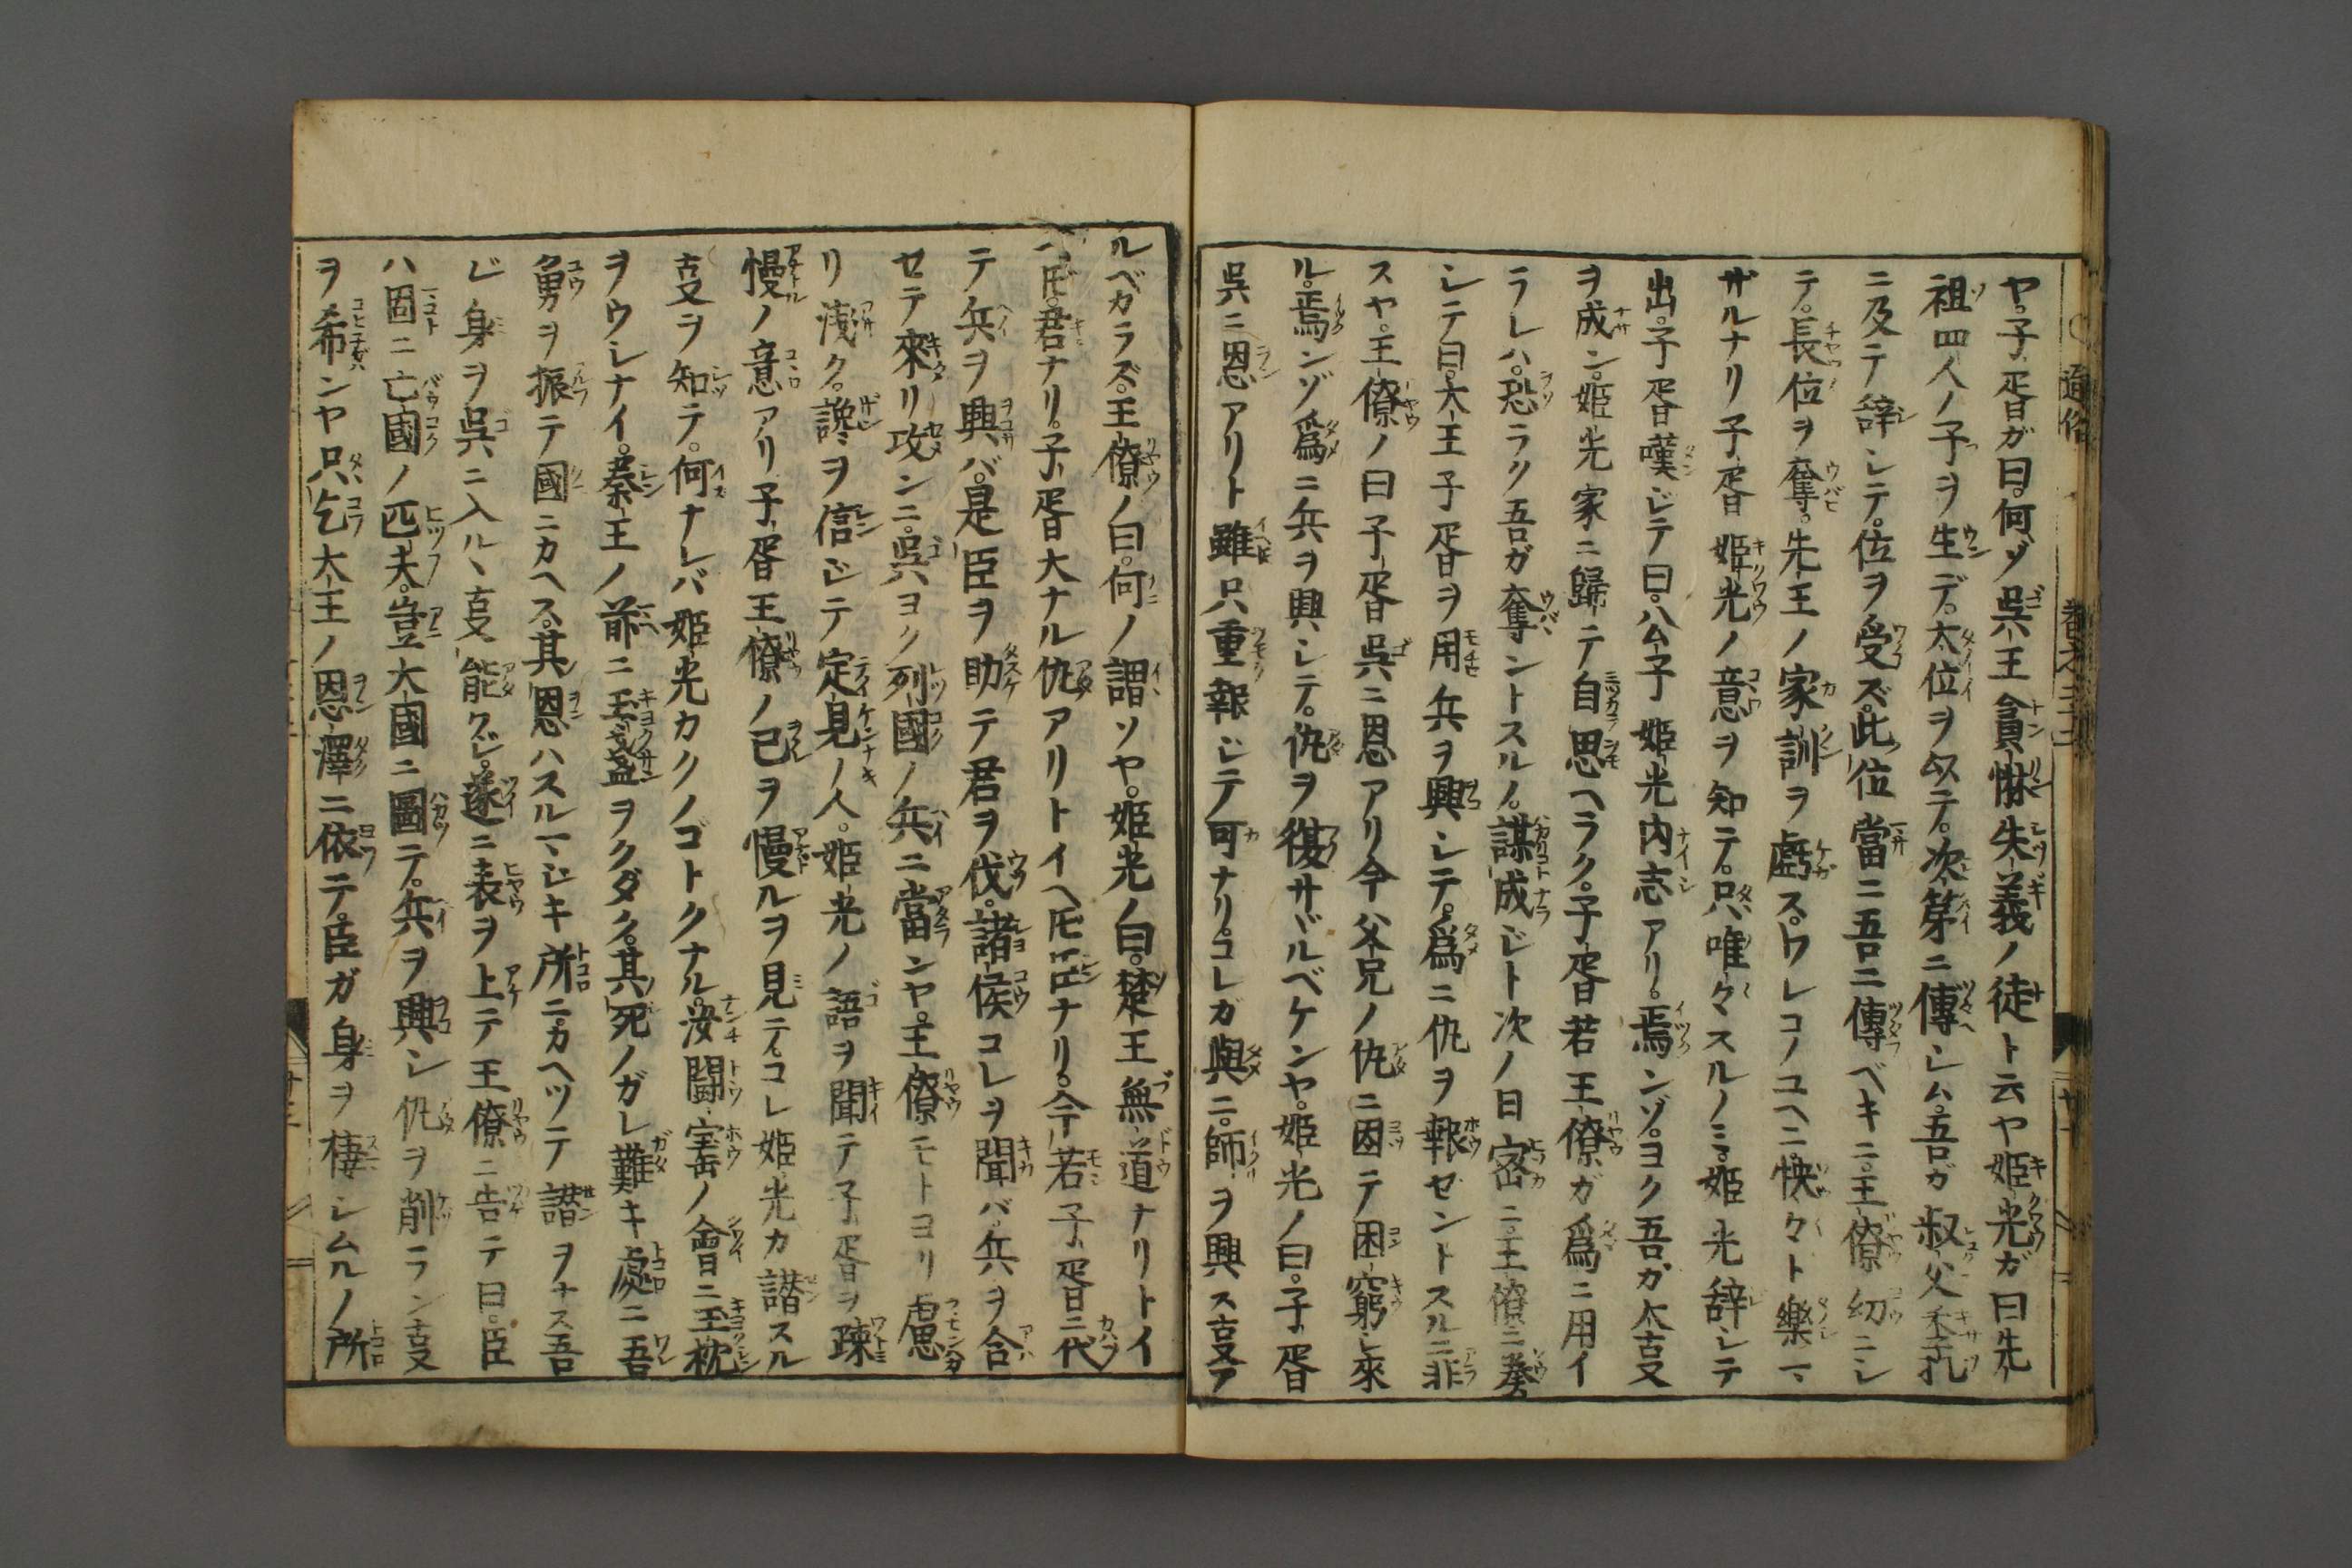 ヤ。子胥ガ曰。何ゾ呉王貪惏失義ノ徒ト云ヤ姫光ガ曰先
祖四人ノ子ヲ生デ。大位ヲ以テ。次第ニ傳シム。吾ガ叔父季札
ニ及テ辞シテ。位ヲ受ズ。此位當ニ吾ニ傳ベキニ。王僚幼ニシ
テ。長位ヲ奪。先王ノ家訓ヲ虧ス。ワレコノユヘニ。怏々ト樂マ
ザルナリ子胥姫光ノ意ヲ知テ。只唯々スルノミ。姫光辞シテ
出。子胥嘆ジテ曰。公子姫光内志アリ。焉ンゾ。ヨク吾ガ大事
ヲ成ン。姫光家ニ歸テ自思ヘラク。子胥若王僚ガ爲ニ用イ
ラレハ。恐ラク吾ガ奪ントスルノ。謀成ジト次ノ日密ニ。王僚ニ奏
シテ曰。大王子胥ヲ用兵ヲ興シテ。爲ニ仇ヲ報ゼントスルニ非
スヤ。王僚ノ曰子胥呉ニ恩アリ今父兄ノ仇ニ因テ困窮シ來
ル。焉ンゾ爲ニ兵ヲ興シテ。仇ヲ復サヾルベケンヤ。姫光ノ曰。子胥
呉ニ恩アリト雖只重報ジテ可ナリ。コレガ與ニ。師ヲ興ス事ア
ルベカラズ。王僚ノ曰。何ノ謂ソヤ。姫光ノ曰。楚王無道ナリトイ
ヘ𪜈。君ナリ。子胥大ナル仇アリトイヘ𪜈臣ナリ。今若子胥ニ代
テ兵ヲ興バ。是臣ヲ助テ君ヲ伐。諸侯コレヲ聞バ。兵ヲ合
セテ來リ攻ンニ。呉ヨク列國ノ兵ニ當ンヤ。王僚モトヨリ慮
リ淺ク。讒ヲ信ジテ定見ノ人。姫光ノ語ヲ聞テ子胥ヲ疎
慢ノ意アリ子胥王僚ノ己ヲ慢ルヲ見テ。コレ姫光カ譖スル
事ヲ知テ。何ナレバ姫光カクノゴトクナル。汝闘寳ノ會ニ玉枕
ヲウシナイ。秦王ノ前ニ玉盞ヲクダク。其死ノガレ難キ處ニ吾
勇ヲ振テ國ニカヘス。其恩ハスルマジキ所ニ。カヘツテ譖ヲナス吾
ジ身ヲ呉ニ入ルヽ事能クジ。遂ニ表ヲ上テ王僚ニ告テ曰。臣
ハ固ニ亡國ノ匹夫。豈大國ニ圖テ。兵ヲ興シ仇ヲ削ラン事
ヲ希ンヤ只乞大王ノ恩澤ニ依テ。臣ガ身ヲ棲シムルノ所